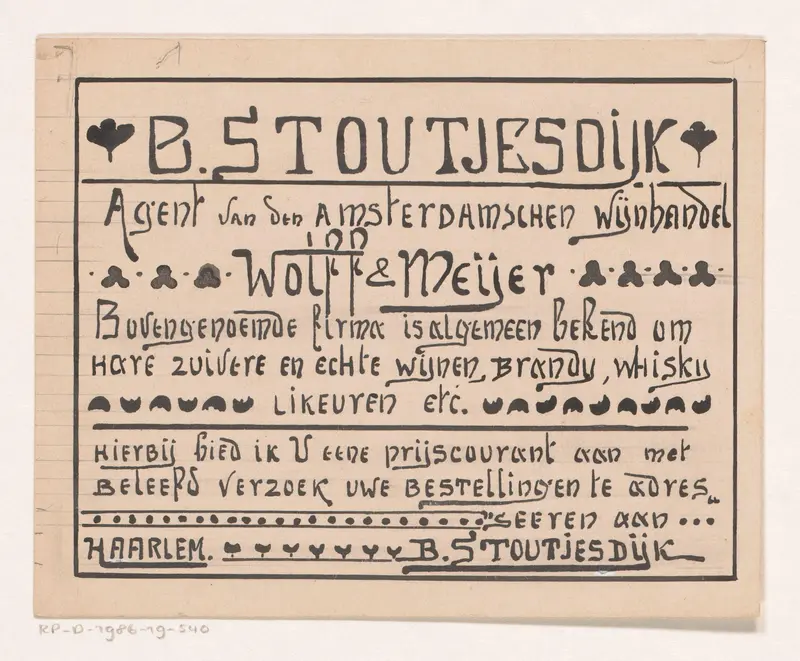 B. STOUTJESDIJK
Agent van den AMSTERDAMSCHEN Wijnhandel
inn
Wolff & Meijer
Bovengenoemde firma is algemeen bekend om
Hare zuivere en echte wijnen, BRANDY, WHISKY
LIKEUREN etc.
HIERBIJ bied ik U eene prijscourant aan met
BELEEFD VERZOEK UWE BESTELLINGEN te adres„
SEEREN aan ...
HAARLEM. B. STOUTJESDIJK
RP-D-1986-19-540